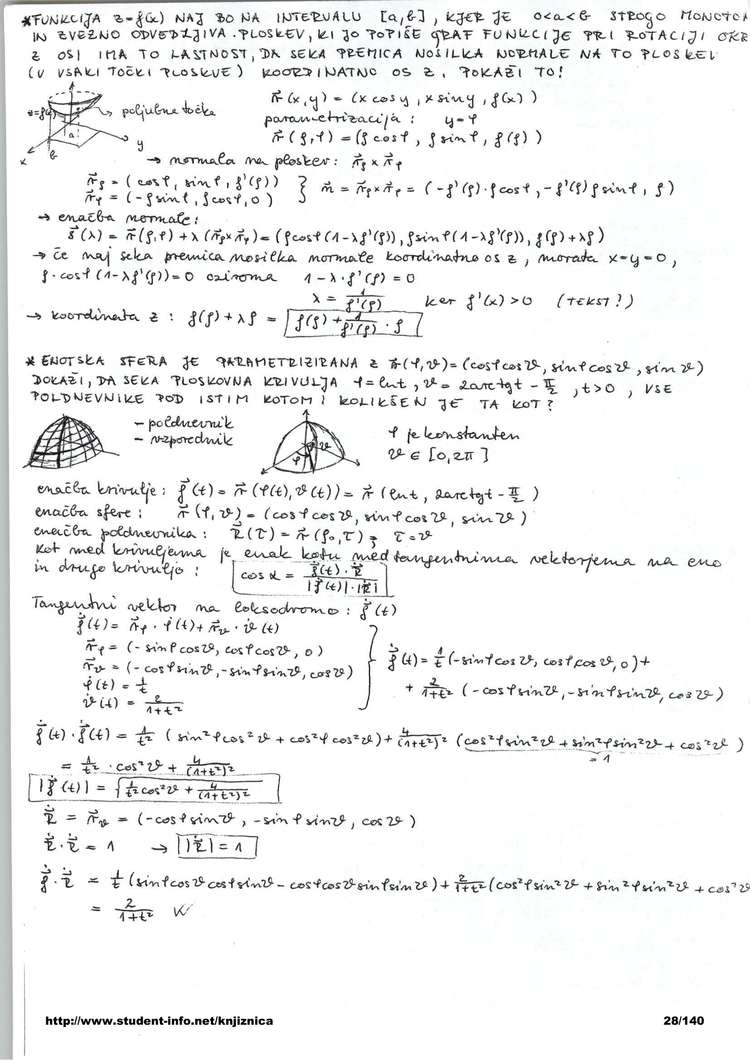 *FUNKCIJA z=f(x) NAJ BO NA INTERVALU [a,b], KJER JE 0<a<b STROGO MONOTO
IN ZVEZNO ODVEDLJIVA. PLOSKEV, KI JO POPIŠE GRAF FUNKCIJE PRI ROTACIJI OKR
Z OSI IMA TO LASTNOST, DA SEKA PREMICA NOSILKA NORMALE NA TO PLOSKEV
(V VSAKI TOČKI PLOSKVE) KOORDINATNO OS Z, POKAŽI TO!
z=f(x) → poljubne točke r⃗(x,y) = (x cosy, x siny, f(x))
parametrizacija: y=φ
a b x y r⃗(ρ,φ) = (ρ cosφ, ρ sinφ, f(ρ))
→ normala na ploskev: r⃗ρ × r⃗φ
r⃗ρ = (cosφ, sinφ, f'(ρ))
r⃗φ = (-ρ sinφ, ρ cosφ, 0) } n⃗ = r⃗ρ×r⃗φ = (-f'(ρ)·ρ cosφ, -f'(ρ)ρ sinφ, ρ)
→ enačba normale:
s⃗(λ) = r⃗(ρ,φ) + λ(r⃗ρ×r⃗φ) = (ρcosφ(1-λf'(ρ)), ρsinφ(1-λf'(ρ)), f(ρ)+λρ)
→ če naj seka premica nosilka normale koordinatno os z, morata x=y=0,
ρ·cosφ(1-λf'(ρ))=0 oziroma 1-λ·f'(ρ) = 0
λ = 1/f'(ρ) ker f'(x)>0 (TEKST?)
→ koordinata z: f(ρ)+λρ = f(ρ) + 1/f'(ρ) · ρ
* ENOTSKA SFERA JE PARAMETRIZIRANA Z r⃗(φ,ϑ)=(cosφcosϑ, sinφcosϑ, sinϑ)
DOKAŽI, DA SEKA PLOSKOVNA KRIVULJA φ=lnt, ϑ=2arctgt - π/2, t>0, VSE
POLDNEVNIKE POD ISTIM KOTOM! KOLIKŠEN JE TA KOT?
- poldnevnik
- vzporednik
φ ϑ
φ je konstanten
ϑ ∈ [0,2π]
enačba krivulje: ρ⃗(t) = r⃗(φ(t),ϑ(t)) = r⃗(lnt, 2arctgt - π/2)
enačba sfere: r⃗(φ,ϑ) = (cosφcosϑ, sinφcosϑ, sinϑ)
enačba poldnevnika: R⃗(τ) = r⃗(φ₀,τ); τ=ϑ
Kot med krivuljama je enak kotu med tangentnima vektorjema na eno
in drugo krivuljo: cos α = ρ⃗̇(t)·R⃗̇ / |ρ⃗̇(t)|·|R⃗̇|
Tangentni vektor na loksodromo: ρ⃗̇(t)
ρ⃗̇(t) = r⃗φ · φ̇(t) + r⃗ϑ · ϑ̇(t)
r⃗φ = (-sinφcosϑ, cosφcosϑ, 0)
r⃗ϑ = (-cosφsinϑ, -sinφsinϑ, cosϑ)
φ̇(t) = 1/t
ϑ̇(t) = 2/(1+t²)
ρ⃗̇(t) = 1/t (-sinφcosϑ, cosφcosϑ, 0) +
+ 2/(1+t²) (-cosφsinϑ, -sinφsinϑ, cosϑ)
ρ⃗̇(t)·ρ⃗̇(t) = 1/t² (sin²φcos²ϑ + cos²φcos²ϑ) + 4/(1+t²)² (cos²φsin²ϑ + sin²φsin²ϑ + cos²ϑ)
=1
= 1/t² · cos²ϑ + 4/(1+t²)²
|ρ⃗̇(t)| = √(1/t² cos²ϑ + 4/(1+t²)²)
R⃗̇ = r⃗ϑ = (-cosφsinϑ, -sinφsinϑ, cosϑ)
R⃗̇·R⃗̇ = 1 → |R⃗̇| = 1
ρ⃗̇·R⃗̇ = 1/t (sinφcosϑcosφsinϑ - cosφcosϑsinφsinϑ) + 2/(1+t²) (cos²φsin²ϑ + sin²φsin²ϑ + cos²ϑ
= 2/(1+t²)
http://www.student-info.net/knjiznica 28/140